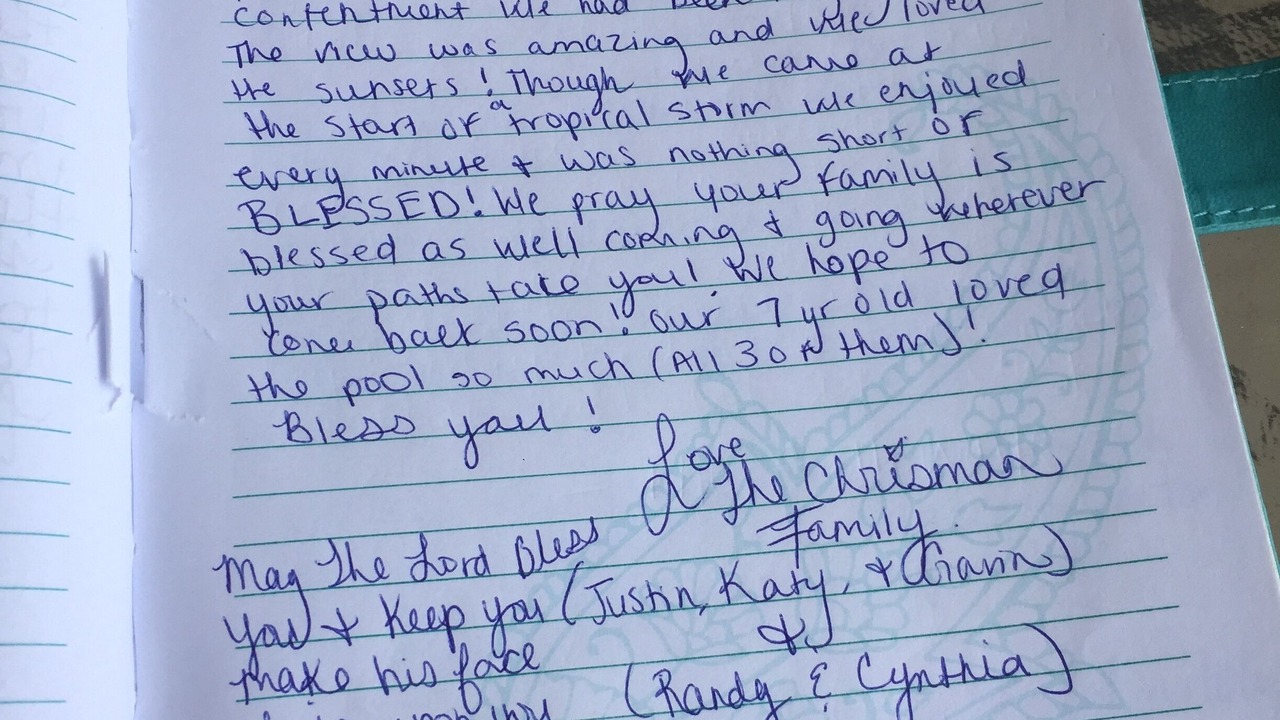 contentment we had been
The view was amazing and we loved
the sunsets! Though we came at
the start of a tropical storm we enjoyed
every minute & was nothing short of
BLESSED! We pray your family is
blessed as well coming & going wherever
your paths take you! We hope to
come back soon! our 7 yr old loved
the pool so much (All 3 of them)!
Bless you!
Love
The Chrisman
Family.
(Justin, Katy, & Gavin)
&
(Randy & Cynthia)
May The Lord Bless
you & Keep you
make his face